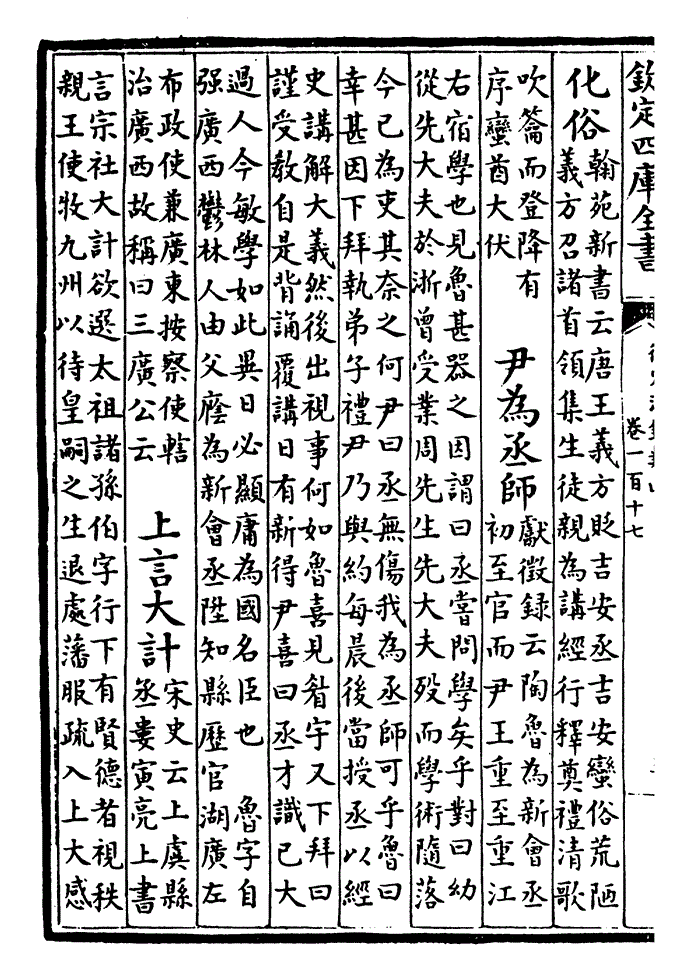 欽定四庫全書
卷一百十七
化俗
翰苑新書云唐王義方貶吉安丞吉安蠻俗荒陋
義方召諸首領集生徒親為講經行釋奠禮清歌
吹籥而登降有
序蠻酋大伏
尹為丞師
獻徵録云陶魯為新會丞
初至官而尹王重至重江
右宿學也見魯甚器之因謂曰丞嘗問學矣乎對曰幼
從先大夫於浙曾受業周先生先大夫殁而學術隨落
今已為吏其奈之何尹曰丞無傷我為丞師可乎魯曰
幸甚因下拜執弟子禮尹乃與約每晨後當授丞以經
史講解大義然後出視事何如魯喜見眥宇又下拜曰
謹受教自是背誦覆講日有新得尹喜曰丞才識已大
過人今敏學如此異日必顯庸為國名臣也 魯字自
强廣西鬱林人由父廕為新會丞陞知縣歷官湖廣左
布政使兼廣東按察使轄
治廣西故稱曰三廣公云
上言大計
宋史云上虞縣
丞婁寅亮上書
言宗社大計欲選太祖諸孫伯字行下有賢德者視秩
親王使牧九州以待皇嗣之生退處藩服疏入上大感